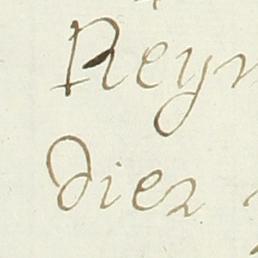 Reyn
diez